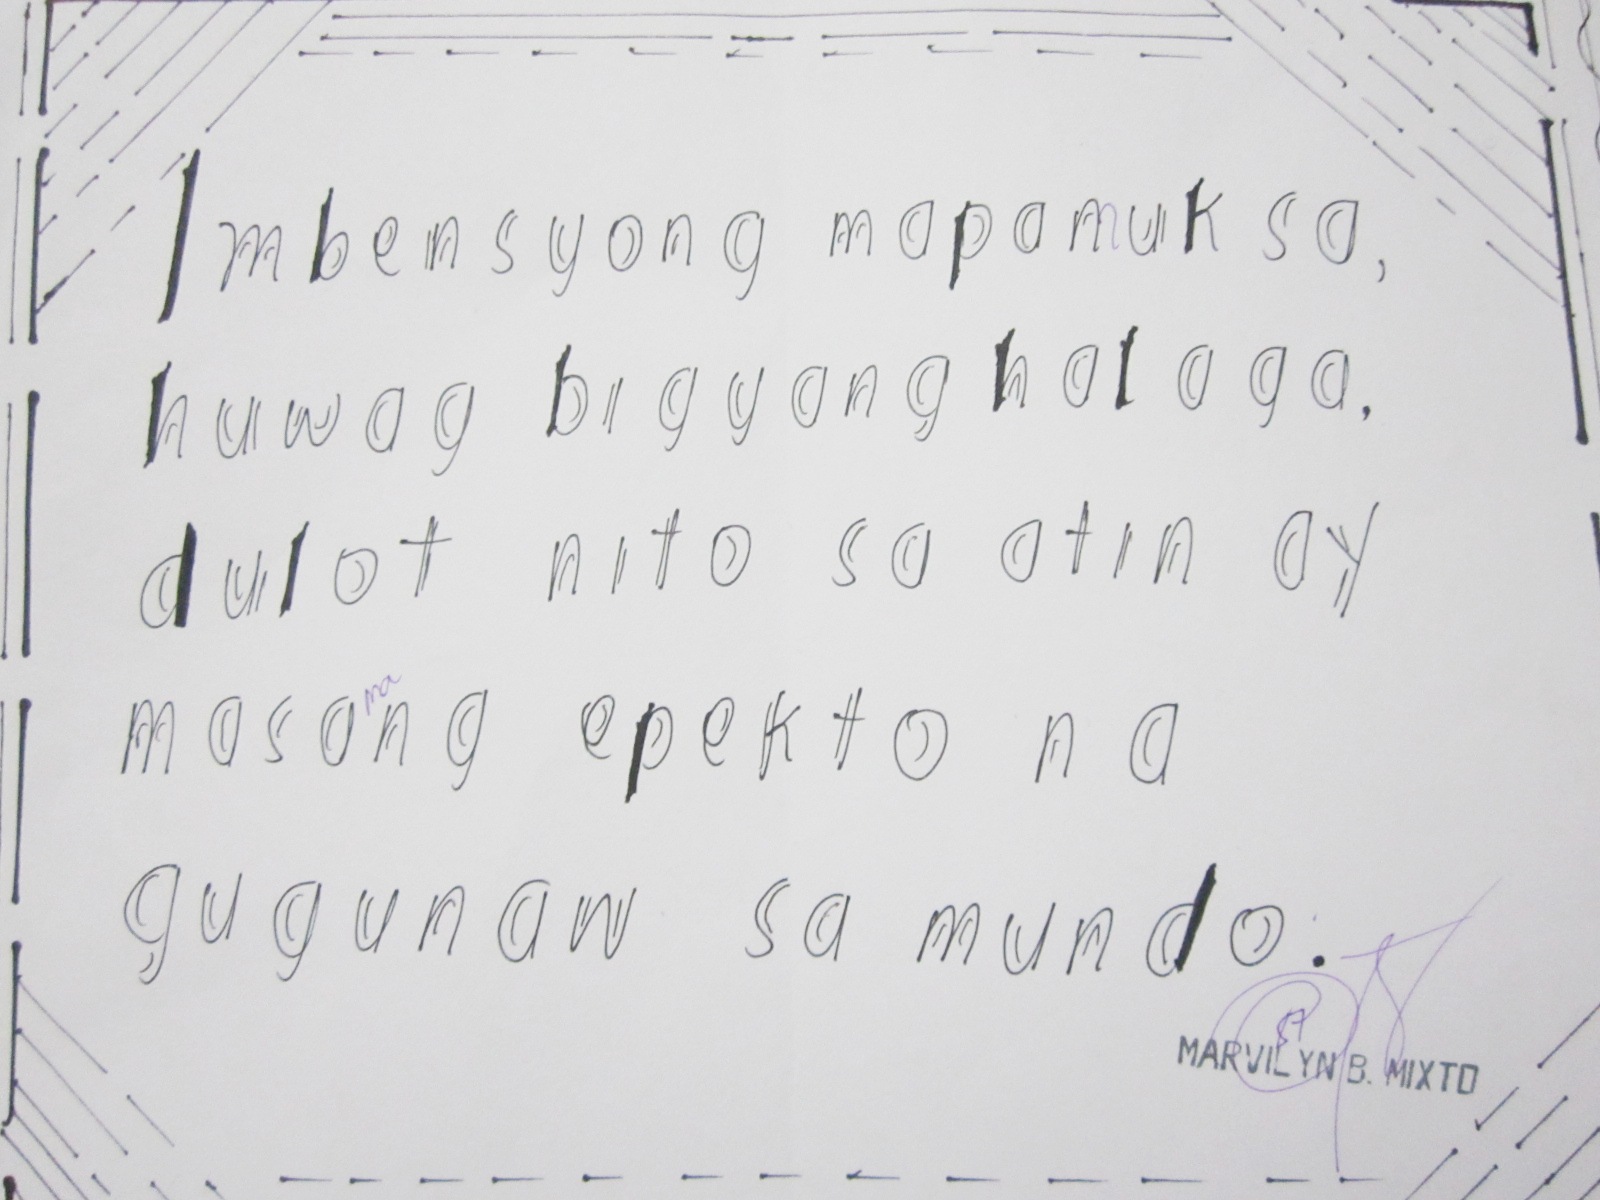 Imbensyong mapamuksa,
huwag bigyang halaga.
dulot nito sa atin ay
masamang epekto na
gugunaw sa mundo.
MARVILYN B. MIXTO